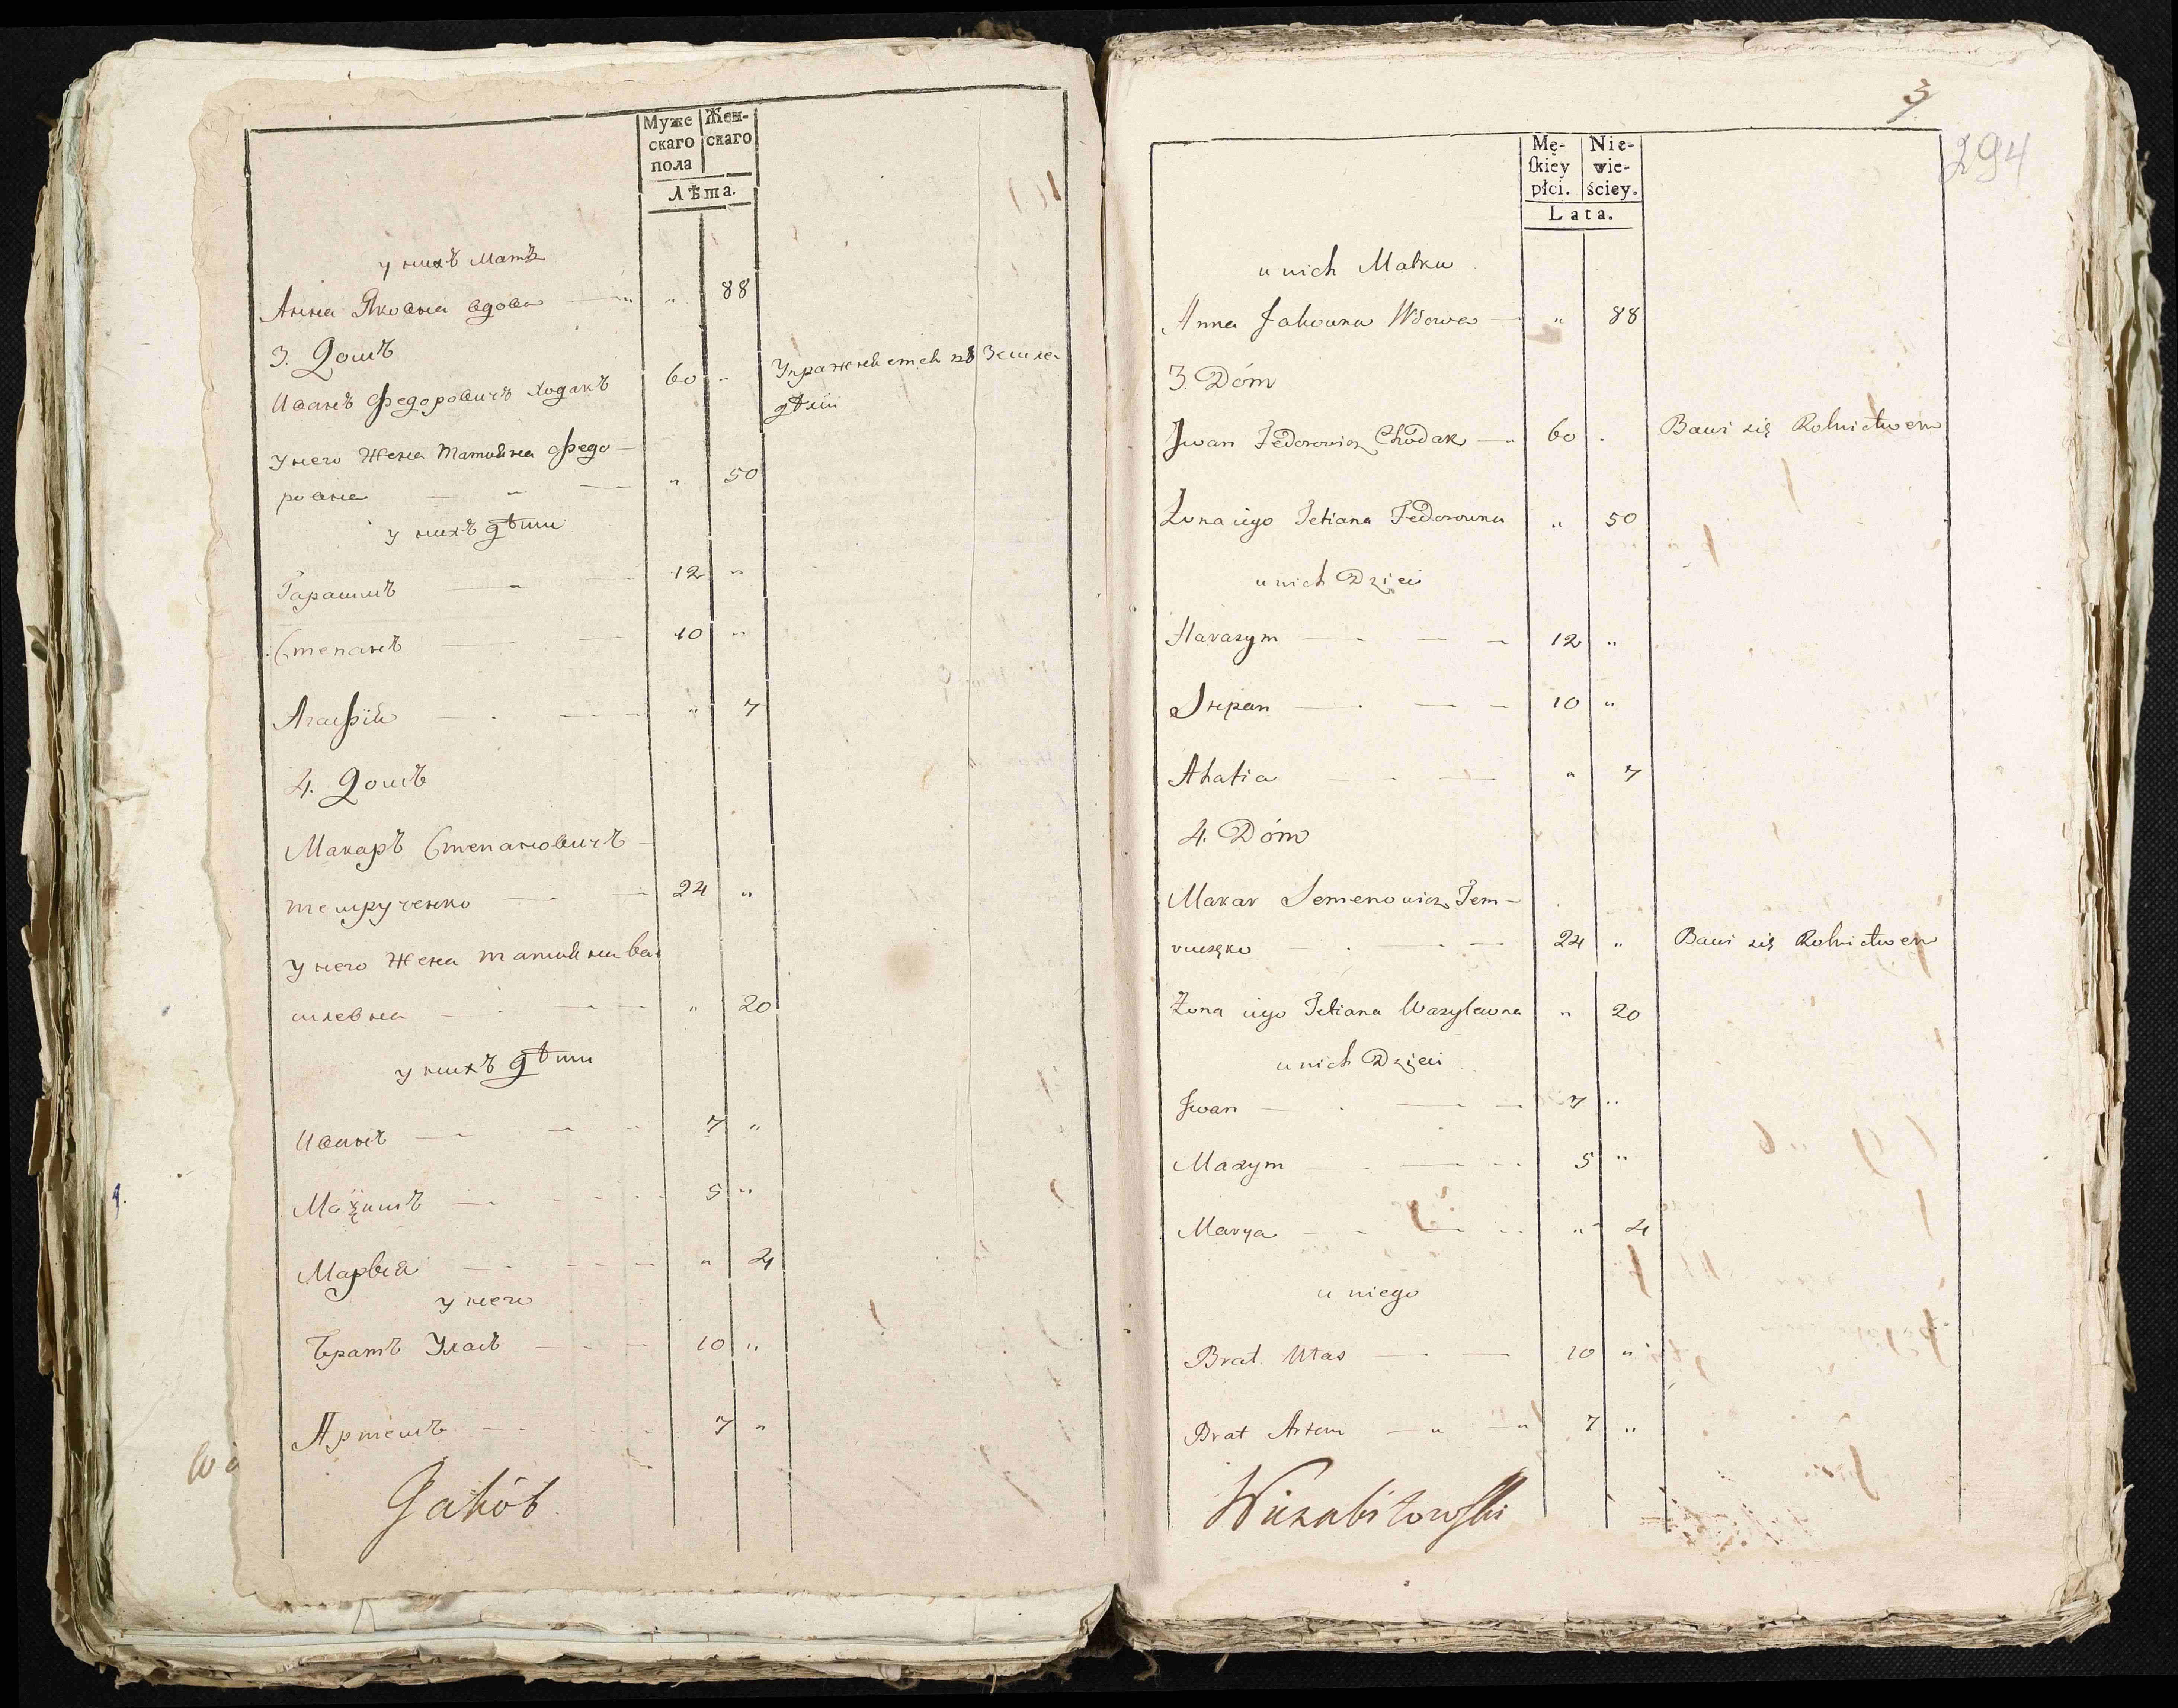 Муже
скаго
пола
Жен-
скаго
Лѣта.
у нихъ Мать
Анна Яковна вдова — " " 88
3. Домъ
Иванъ Федоровичъ Ходакъ 60 " Упражняется въ Земле-
дѣліи
у него Жена Татияна Федо-
ровна — " — " 50
у нихъ дѣти
Гарасимъ — " — 12 "
Степанъ — — 10 "
Агафія — . — " 7
4. Домъ
Макаръ Степановичъ —
темрученко — — 24 "
у него Жена татияна ва
силевна — . — " 20
у нихъ дѣти
Иванъ — — 7 "
Маѯимъ — 5 "
Марья — — " 4
у него
Братъ Уласъ — — 10 "
Артемъ — — 7 "
Jakób
3
294
Mę-
ſkiey
płci.
Nie-
wie-
ściey.
Lata.
u nich Matka
Anna Jakowna Wdowa — " 88
3. Dóm
Jwan Fedorowicz Chodak — " 60 . Bawi się Rolnictwem
Żona iego Tetiana Fedorowna " 50
u nich Dzieci
Harasym — — — 12 "
Stepan — . — — 10 "
Ahafia — . — " 7
4. Dóm
Makar Semenowicz Tem-
ruczęko — . . — 24 " Bawi się Rolnictwem
Żona iego Tetiana Wasylewna " 20
u nich Dzieci
Jwan — . — — 7 "
Maxym — . — 5 "
Marya — — " 4
u niego
Brat Ułas — . — 10 "
Brat Artem — " — " 7 "